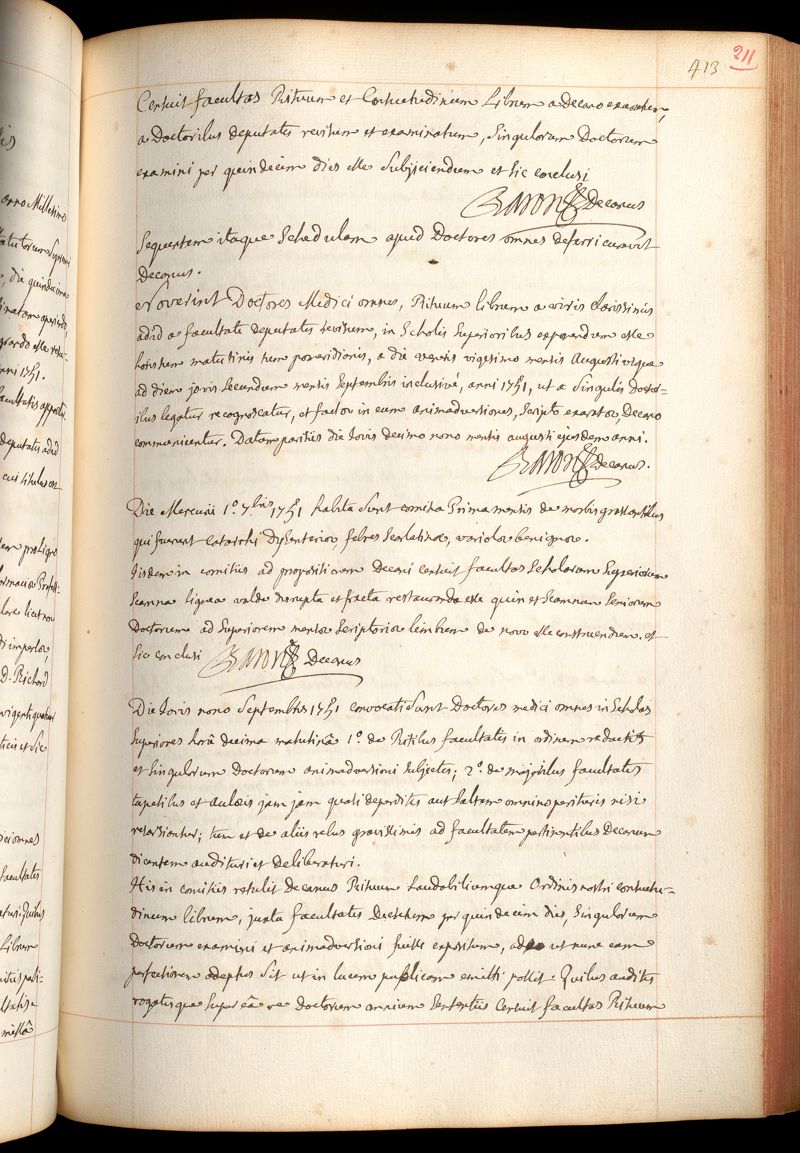 413 211
Censuit facultas Rituum et Consuetudinum Librum a Decano exaratum,
a Doctoribus deputatis revisum et examinatum, Singulorum Doctorum
examini per quindecim dies esse Subjiciendum et sic conclusi
Baron Decanus
Sequentem itaque Schedulam apud Doctores omnes deferri curavit
Decanus.
Noverint Doctores Medici omnes, Rituum librum a viris clarissimis
ad id a facultate deputatis revisum, in Scholis Superioribus exponendum esse
horis tum matutinis tum pomeridianis, a die veneris vigesimo mensis Augusti usque
ad diem jovis Secundum mensis Septembris inclusivé, anni 1751, ut a Singulis doctor=
ibus legatur recognoscatur, et factae in eum animadversiones, scripto exaratae, Decano
communicentur. Datum parisiis die Iovis decimo nono mensis augusti ejusdem anni.
Baron Decanus.
Die Mercurii 1.º 7.bris 1751 habita Sunt comitia Prima mensis de morbis grassantibus
qui fuerunt Catarrhi dysenteriae, febres Scarlatinae, variolae benignae.
Iisdem in comitiis ad propositionem Decani censuit facultas Scholarum Superiorum
Scamna lignea valde disrupta et fracta restauranda esse quin et Scamnum Seniorum
Doctorum ad Superiorem mensae Scriptoriae limbum de novo esse construendum. et
sic conclusi Baron Decanus
Die Iovis nono Septembris 1751 convocati Sunt Doctores medici omnes in Scholas
Superiores horâ decima matutinâ 1.º de Ritibus facultatis in ordinem redactis
et Singulorum Doctorum animadversioni subjectis; 2.º de majoribus facultatis
tapetibus et aulaeis jam jam quasi deperditis aut Saltem omnino perituris nisi
resarciantur; tum et de aliis rebus gravissimis ad facultatem pertinentibus Decanum
dicentem audituri et deliberaturi.
His in comitiis retulit Decanus Rituum laudabiliumque Ordinis nostri consuetu=
dinum librum, juxta facultatis Decretum per quindecim dies, Singulorum
Doctorum examini et animadversioni fuisse expositum, adeo ut nunc eam
perfectionem adeptus Sit ut in lucem publicam emitti possit. Quibus auditis
rogatisque Super eâ re doctorum omnium Sententiis Censuit facultas Rituum